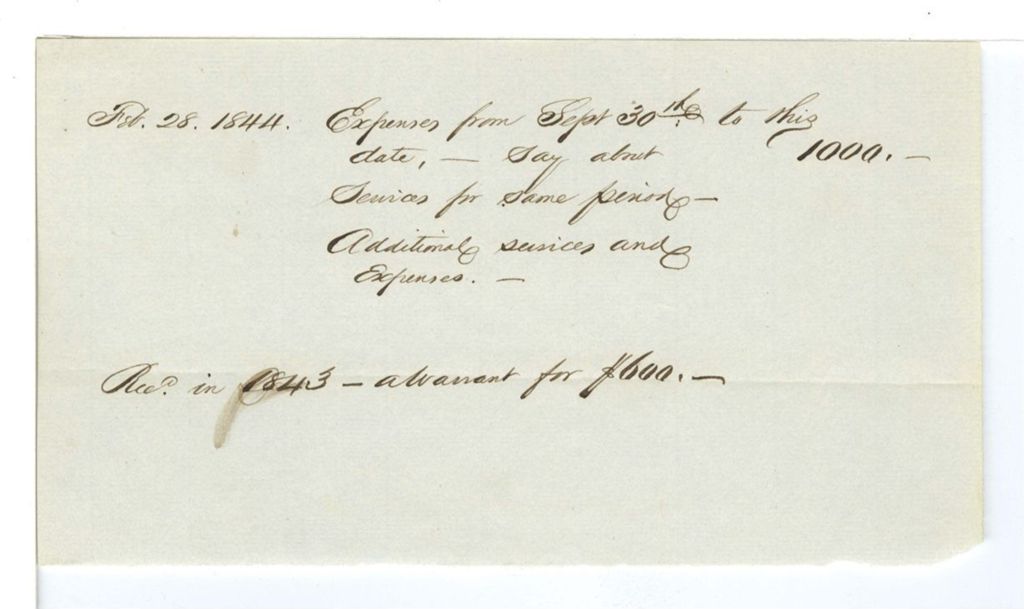 Feb. 28. 1844. Expenses from Sept 30th to this
date, — Say about 1000. —
Services for same period —
Additional services and
Expenses. —
Recd. in 1843 — a Warrant for $600. —